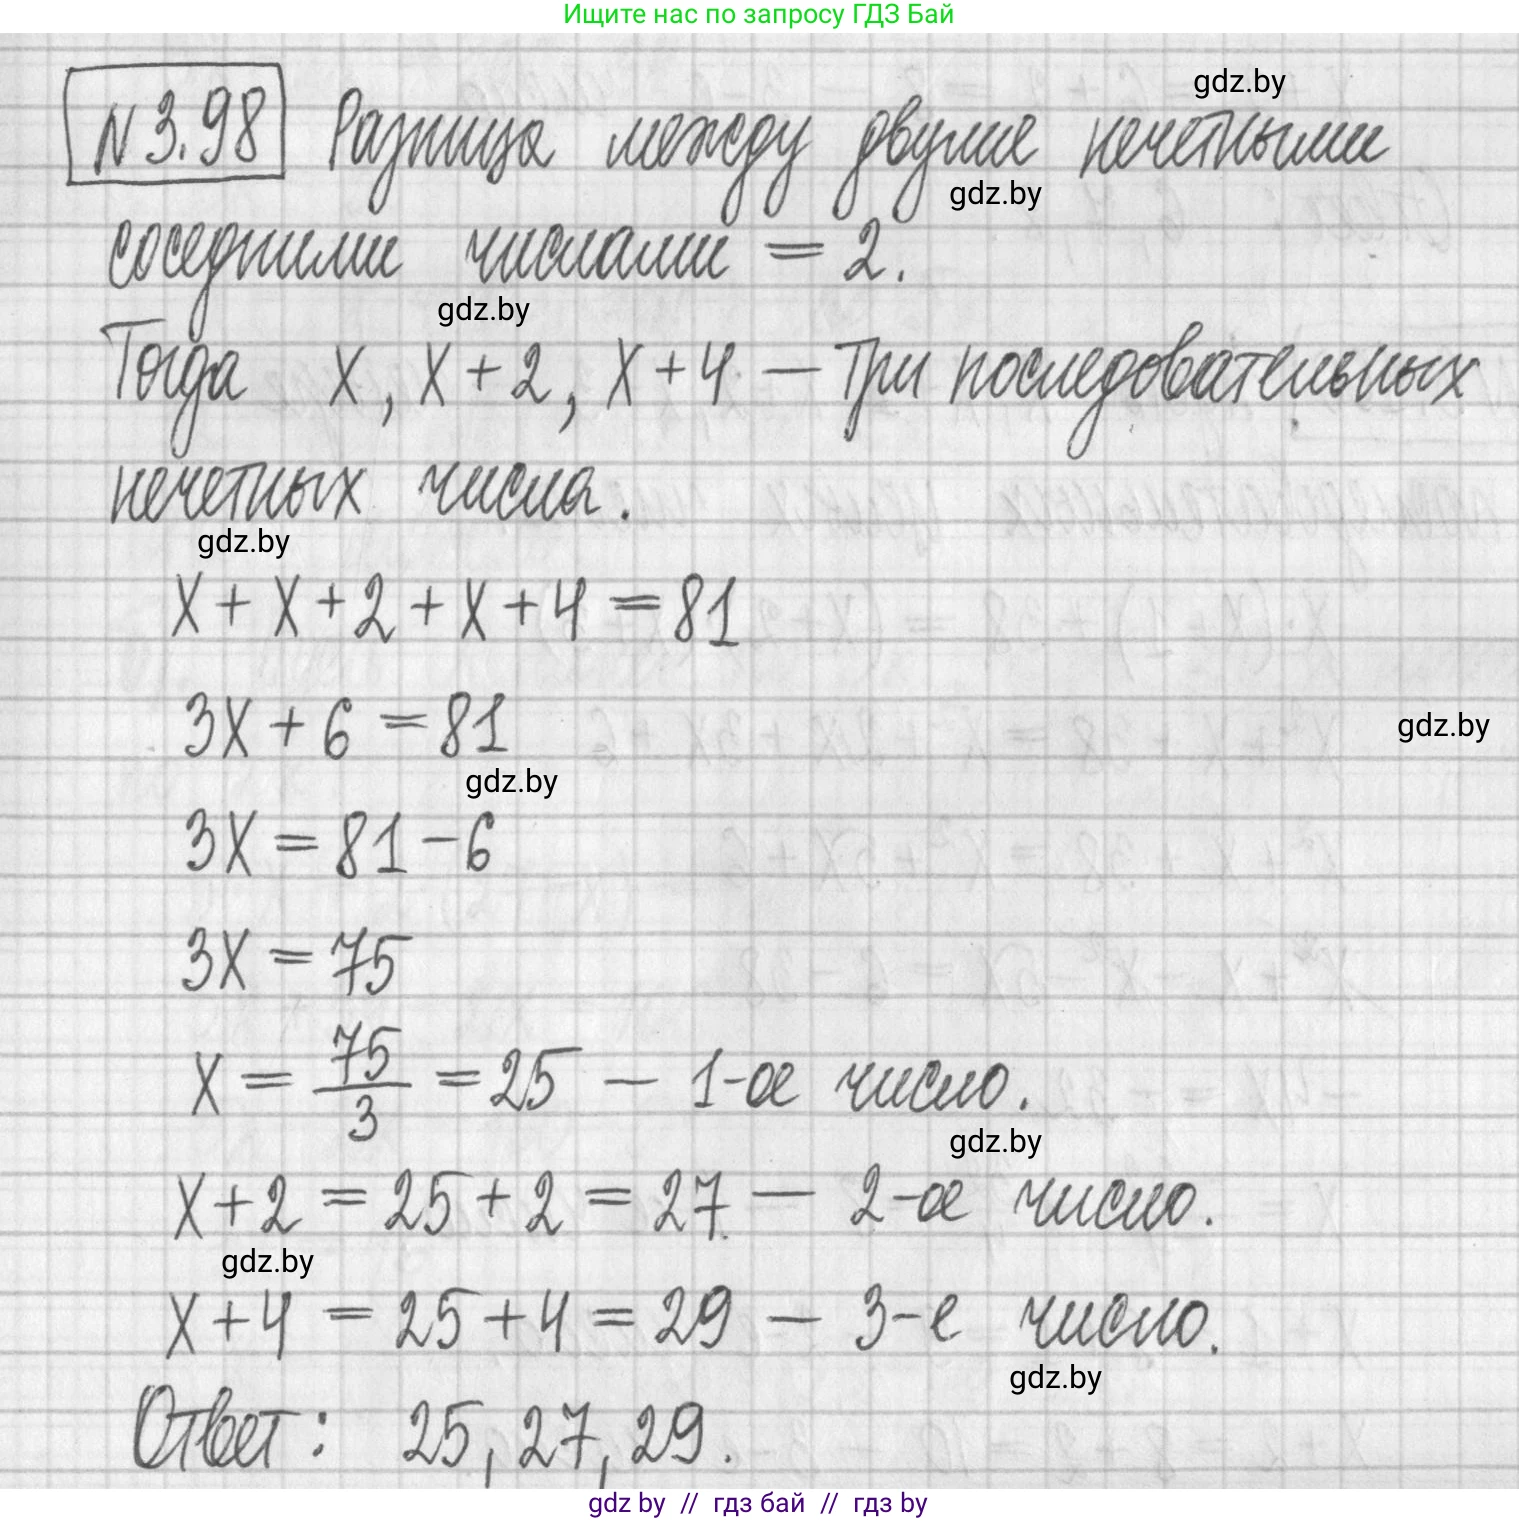 Ищите нас по запросу ГДЗ Бай
gdz.by
N 3.98 Разница между двумя нечетными
gdz.by
соседними числами = 2.
gdz.by
Тогда x, x + 2, x + 4 — три последовательных
нечетных числа.
gdz.by
x + x + 2 + x + 4 = 81
3x + 6 = 81
gdz.by
gdz.by
3x = 81 - 6
3x = 75
x = 75/3 = 25 — 1-ое число.
gdz.by
x + 2 = 25 + 2 = 27 — 2-ое число.
gdz.by
x + 4 = 25 + 4 = 29 — 3-е число.
gdz.by
Ответ: 25, 27, 29.
gdz by // гдз бай // гдз by